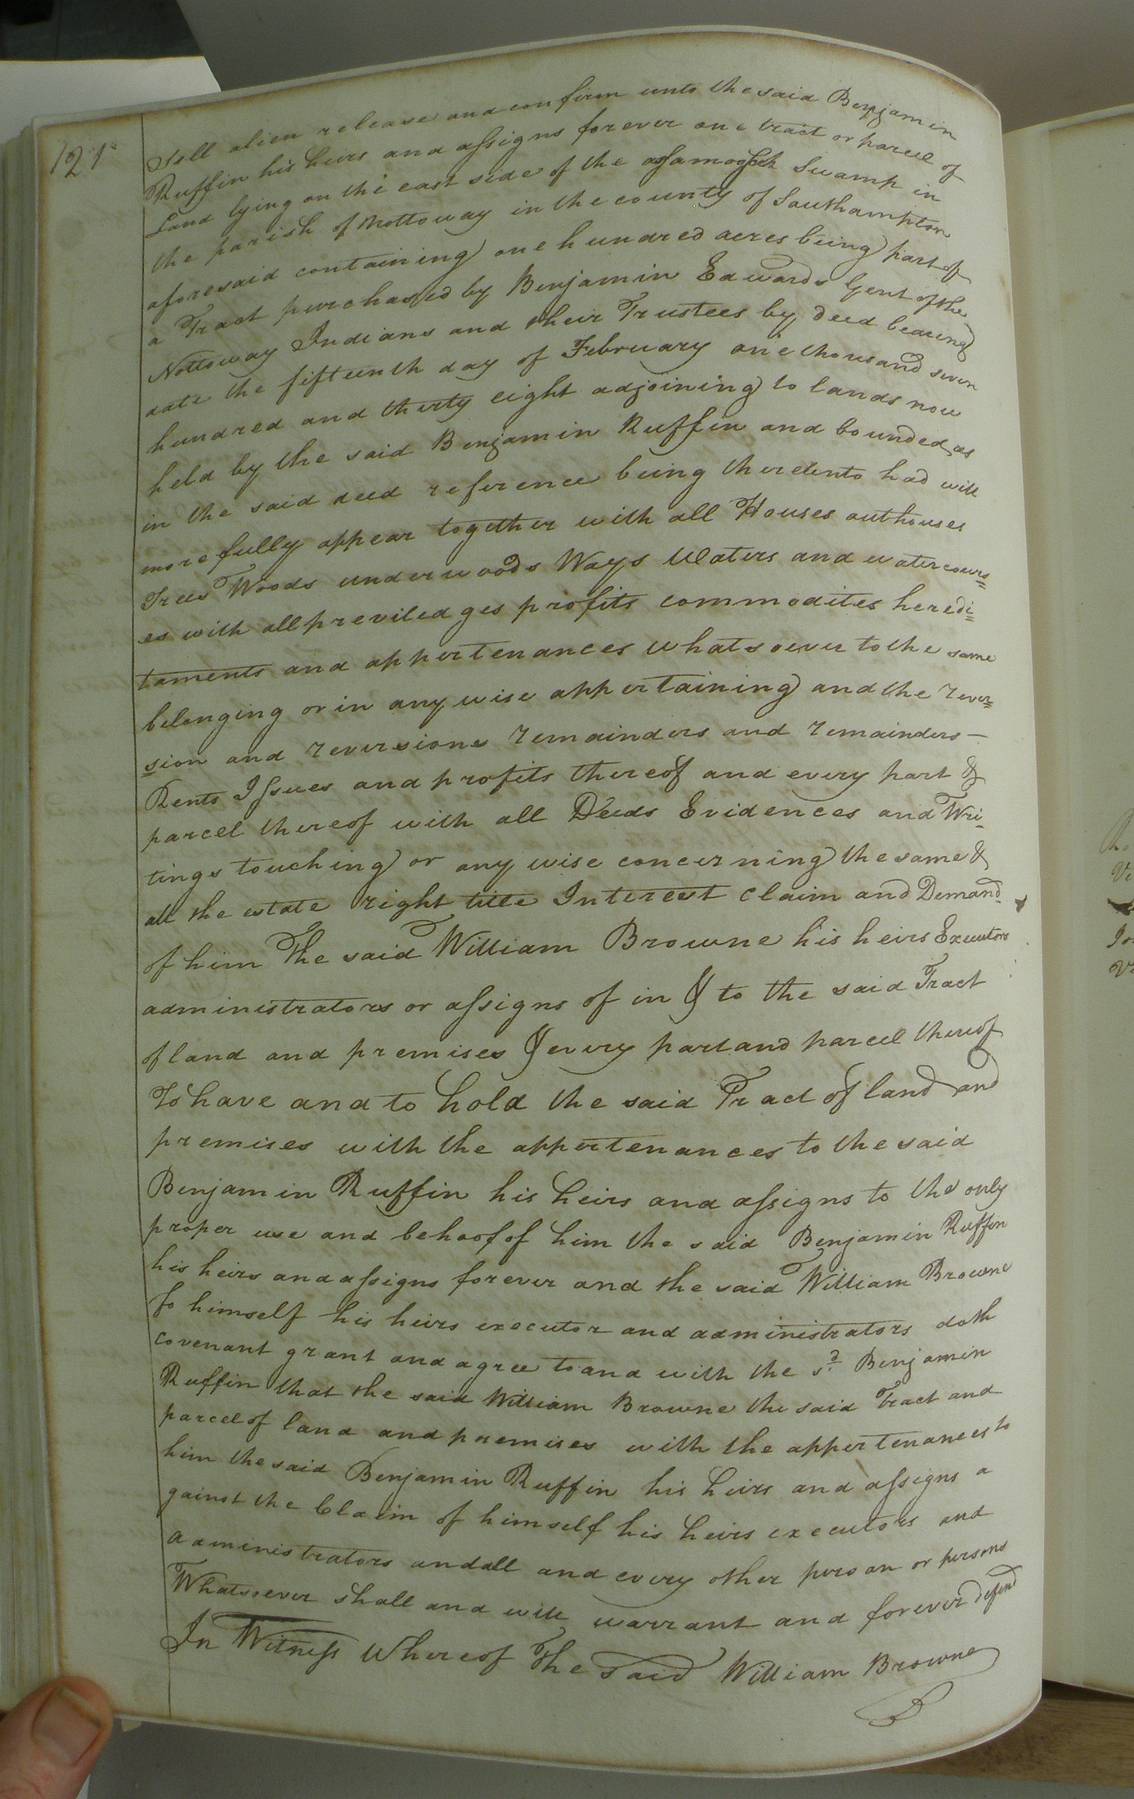 121
Sell alien release and confirm unto the said Benjamin
Ruffin his heirs and assigns forever one tract or parcel of
Land lying on the east side of the assamoosick Swamp in
the parish of Nottoway in the county of Southampton
aforesaid containing one hundred acres being part of
a Tract purchased by Benjamin Edwards Gent of the
Nottoway Indians and their Trustees by deed bearing
date the fifteenth day of February one thousand seven
hundred and thirty eight adjoining to lands now
held by the said Benjamin Ruffin and bounded as
in the said deed reference being thereunto had will
more fully appear together with all Houses outhouses
Trees Woods underwoods Ways Waters and watercours=
es with all previledges profits commodites heredi=
taments and appertenances whatsoever to the same
belonging or in any wise appertaining and the rever=
sion and reversions remainders and remainders —
Rents Issues and profits thereof and every part &
parcel thereof with all Deeds Evidences and Wri-
tings touching or any wise concerning the same &
all the estate right title Interest claim and Demand
of him The said William Browne his heirs Executors
administrators or assigns of in & to the said Tract
of land and premises & every part and parcel thereof
To have and to hold the said Tract of land and
premises with the appertenances to the said
Benjamin Ruffin his heirs and assigns to the only
proper use and behoof of him the said Benjamin Ruffin
his heirs and assigns forever and the said William Browne
fo himself his heirs executor and administrators doth
covenant grant and agree to and with the sd. Benjamin
Ruffin that the said William Browne the said Tract and
parcel of land and premises with the appertenances to
him the said Benjamin Ruffin his heirs and assigns a
gainst the Claim of himself his heirs executors and
administrators and all and every other person or persons
Whatsoever shall and will warrant and forever defend
In Witness Whereof The said William Browne